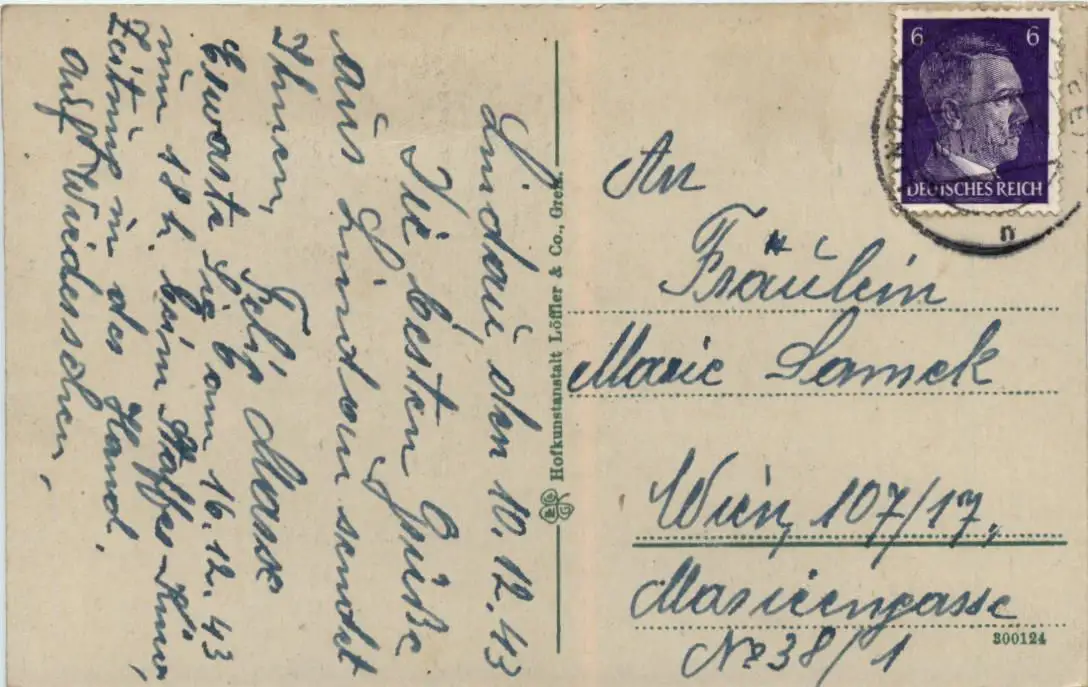 Lindau, den 10. 12. 43
Die besten Grüße
aus Lindau sendet
Ihnen,
Felix
Erwarte Sie vom 16. 12. 43
um 18 h. beim Kino,
Zeitung in der Hand.
auf Wiedersehen,
Hofkunstanstalt Löffler & Co., Greiz.
6 6
DEUTSCHES REICH
n
An
Fräulein
Marie Samek
Wien, 107/17,
Mariengasse
Nr 38/1
300124